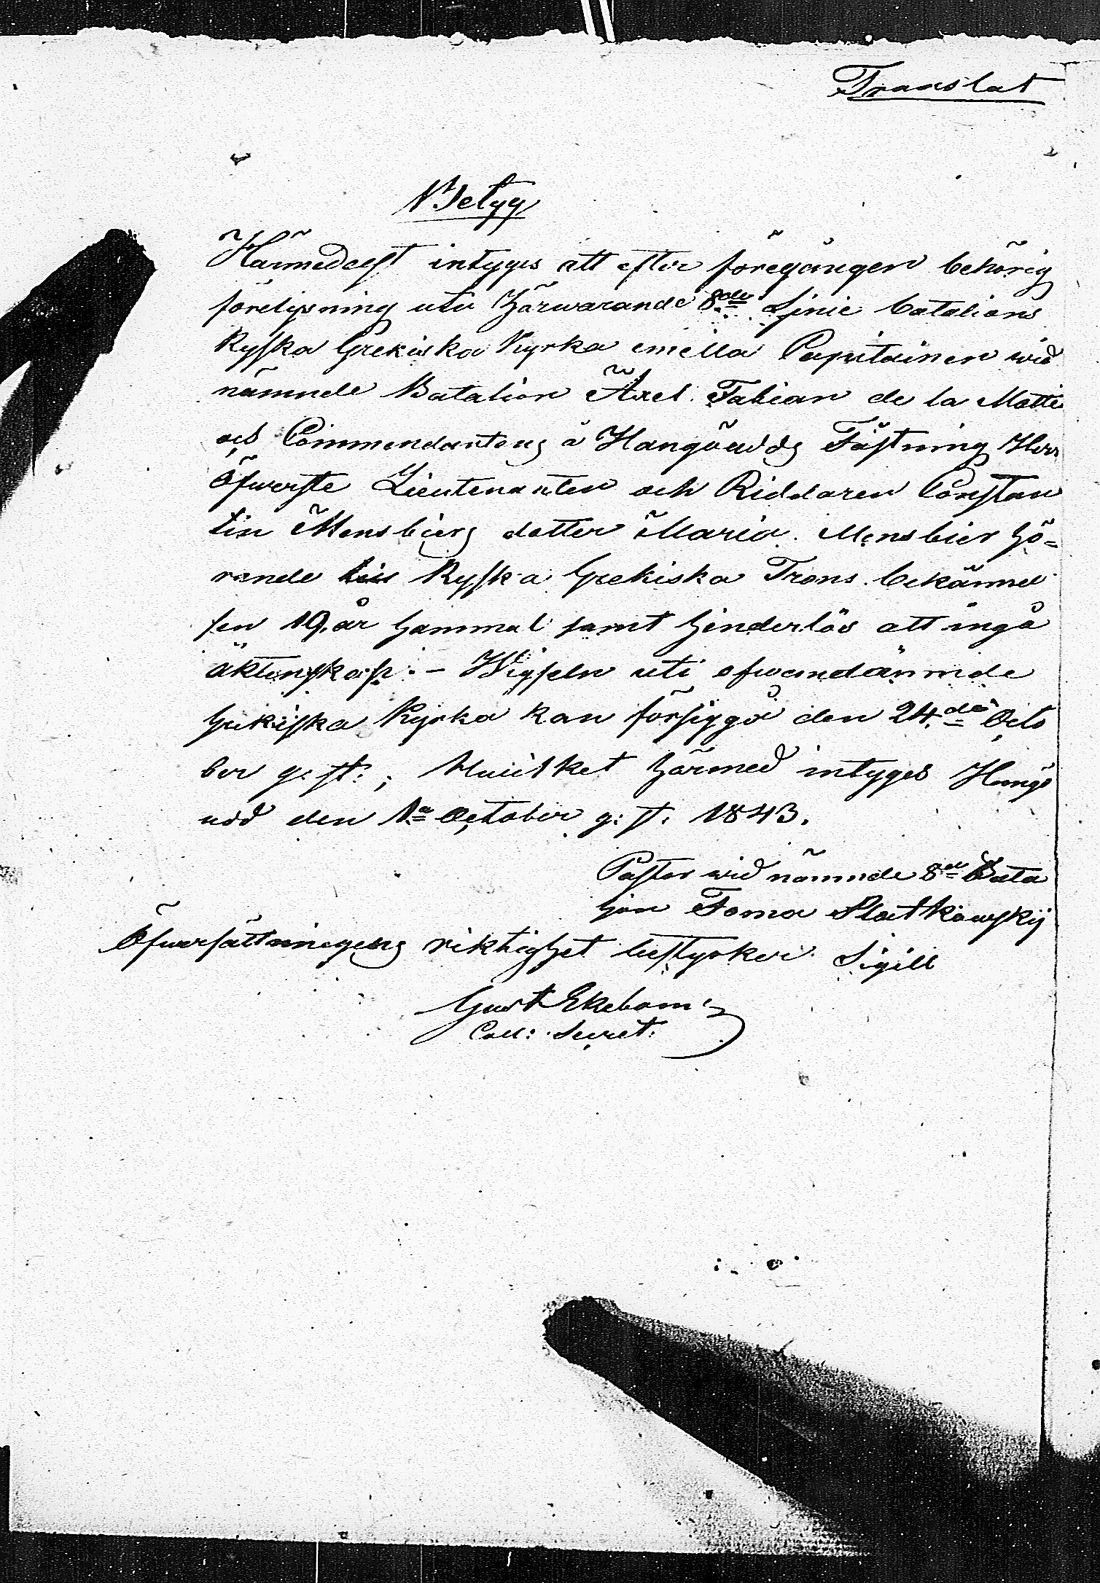 Translat
Betyg
Härmedelst intyges att efter föregången behörig
förelysning uti härwarande 8de Linie bataljons
Ryska Grekiska Kyrka emella Capitainen wid
nämnde Batalion Axel Fabian de la Motte
och Commendantens å Hangöudds Fästning Herr
Öfwerste Lieutenanten och Riddaren Constan
tin Mensbiers dotter Maria Mensbier hö-
rande till Ryska Grekiska Trons bekännel
sen 19 år gammal samt hinderlös att ingå
äktenskap. - Wigseln uti ofwannämnde
Grekiska Kyrka kan försiggå den 24de Octo
ber g: st:, Hwilket härmed intyges Hangö
udd den 1a October g: st. 1843.
Pastor wid nämnde 8de Bata
ljon Foma Slatkowskij
Öfwersättningens riktighet bestyrker Sigill
Gust Ekebom
Coll: Secret: